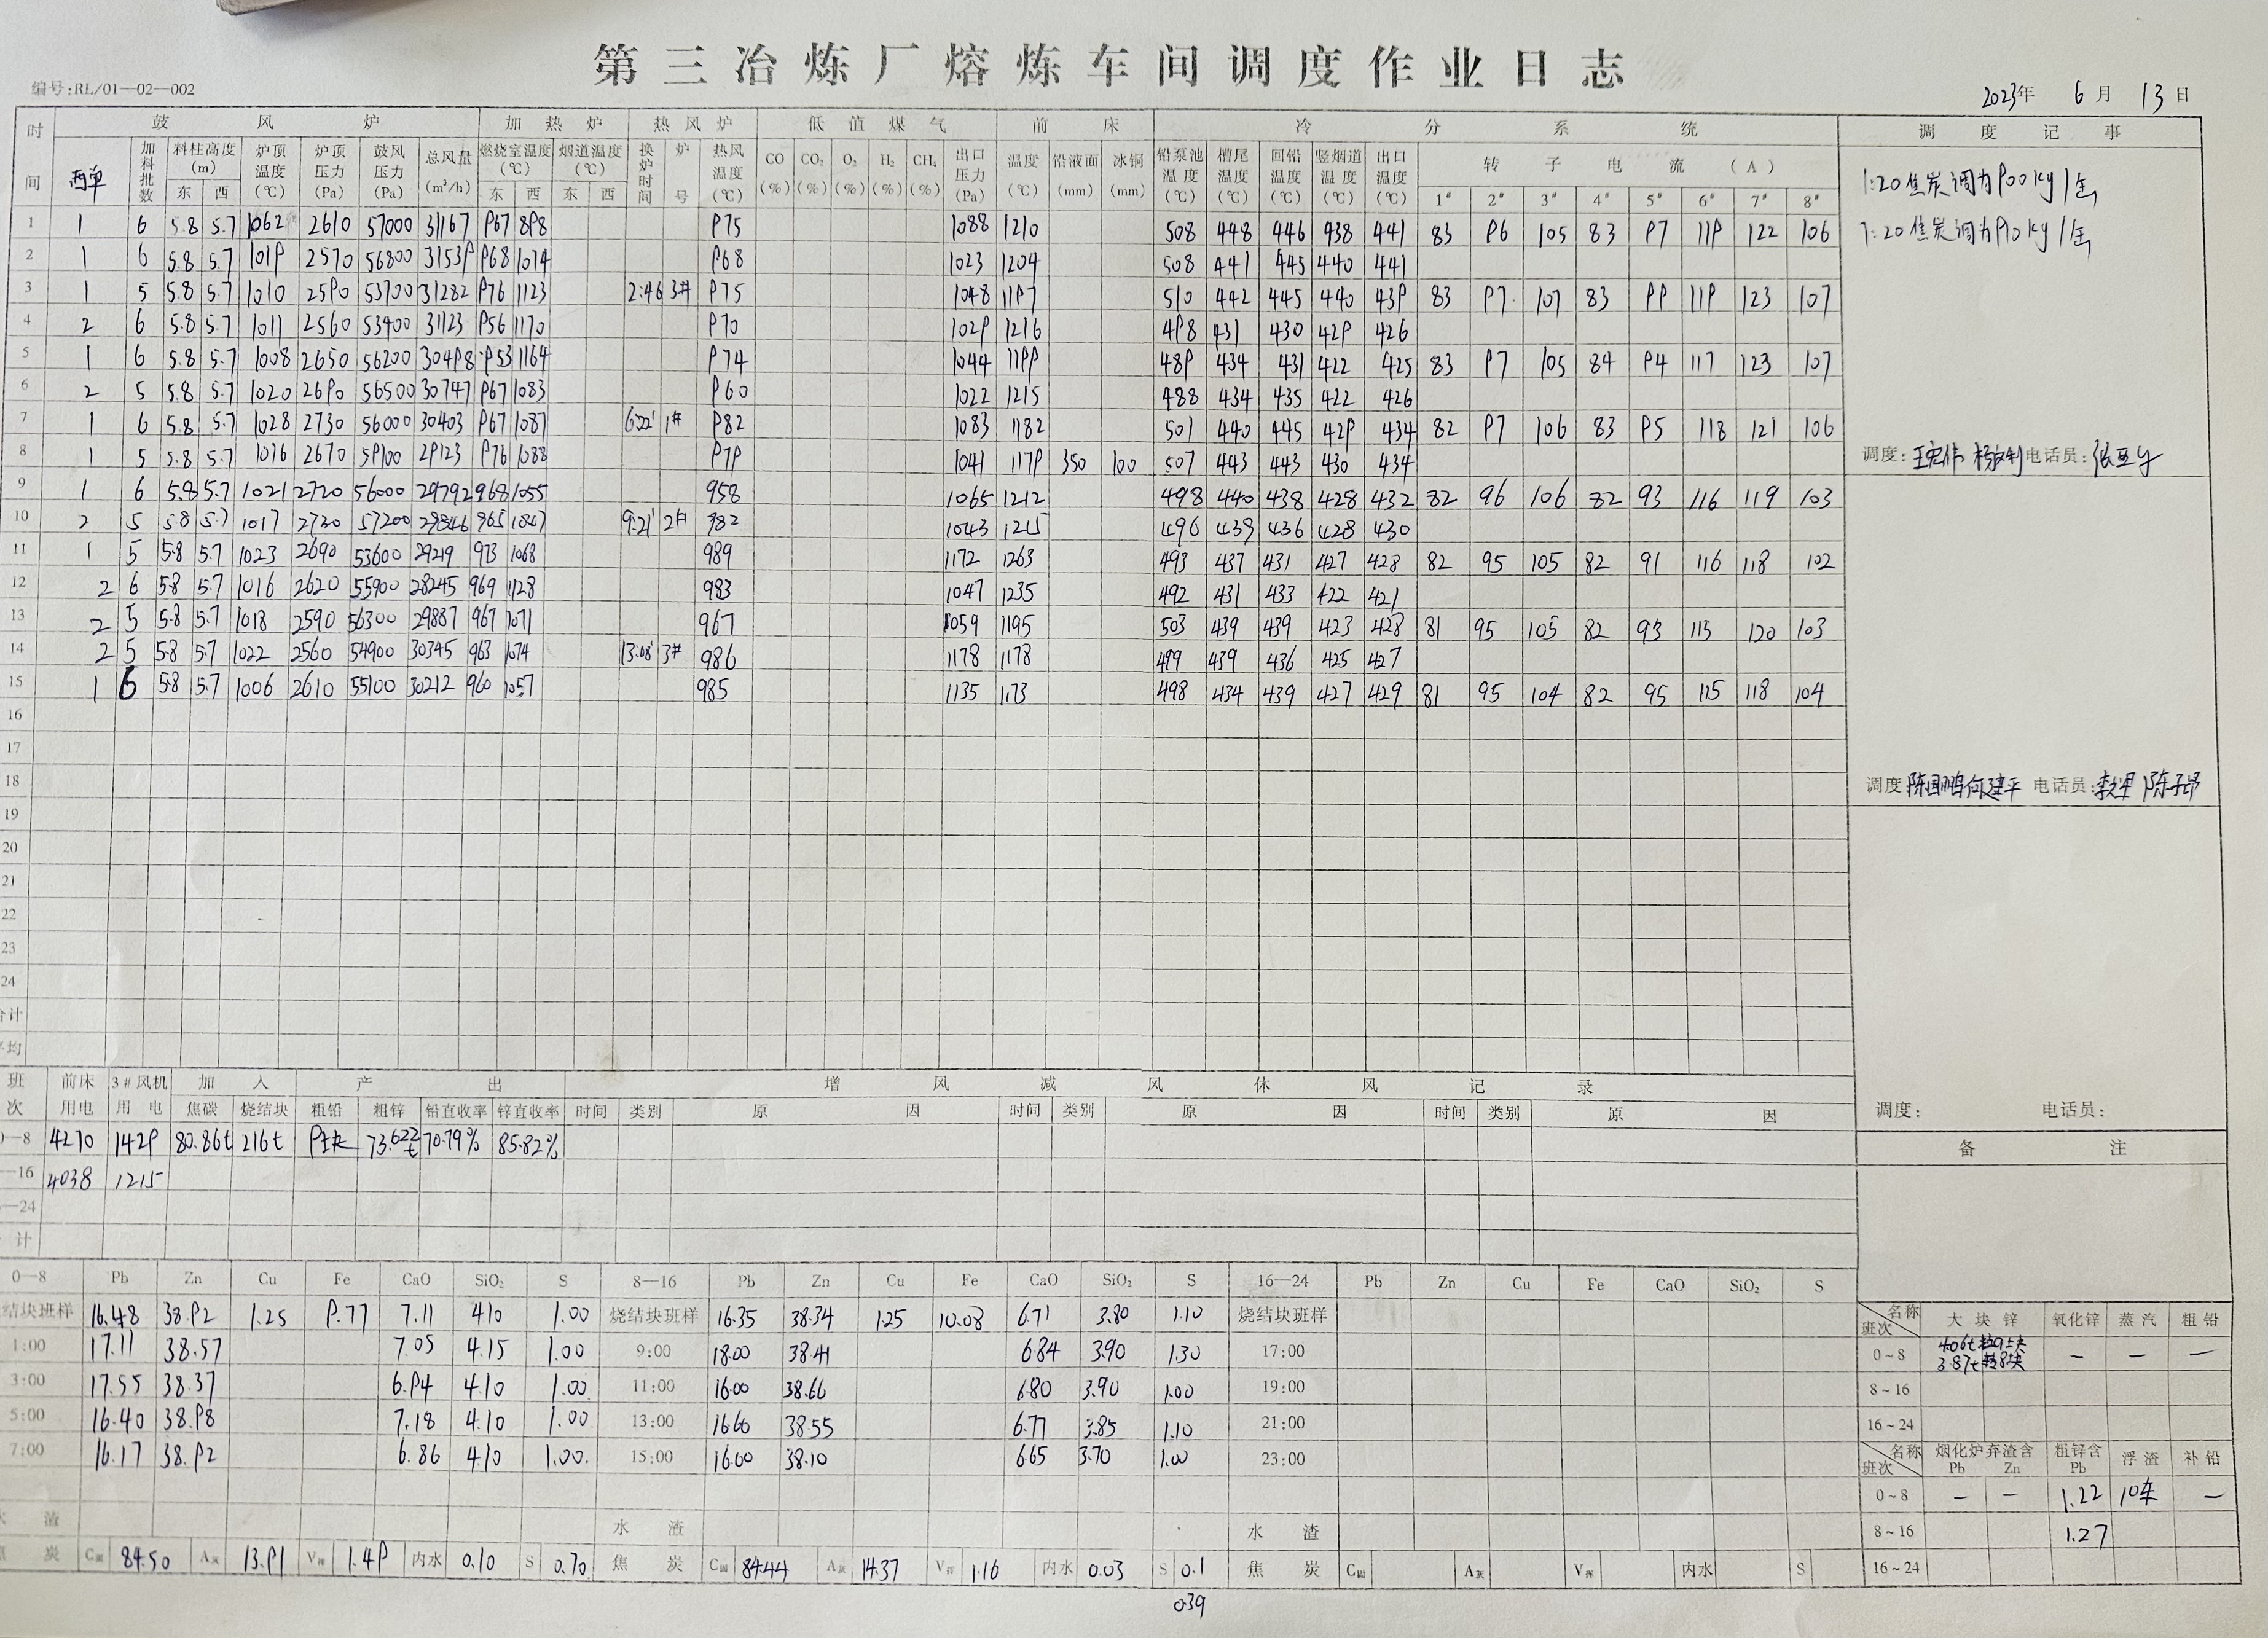 第三冶炼厂熔炼车间调度作业日志
编号:RL/01—02—002
2023年 6月 13日
时间 鼓风炉 加热炉 热风炉 低值煤气 前床 冷分系统 调度记事
西单 加料批数 料柱高度(m) 东 西 炉顶温度(℃) 炉顶压力(Pa) 鼓风压力(Pa) 总风量(m³/h) 燃烧室温度(℃) 东 西 烟道温度(℃) 东 西 换炉时间 炉号 热风温度(℃) CO(%) CO₂(%) O₂(%) H₂(%) CH₄(%) 出口压力(Pa) 温度(℃) 铅液面(mm) 冰铜(mm) 铅泵池温度(℃) 槽尾温度(℃) 回铅温度(℃) 竖烟道温度(℃) 出口温度(℃) 转子电流(A) 1# 2# 3# 4# 5# 6# 7# 8#
1 1 6 5.8 5.7 1062 2610 57000 31167 967 898 975 1088 1210 508 448 446 438 441 83 96 105 83 97 119 122 106
2 1 6 5.8 5.7 1019 2570 56800 31539 968 1074 968 1023 1204 508 441 445 440 441
3 1 5 5.8 5.7 1010 2590 53700 31282 976 1123 2:46 3# 975 1048 1197 510 442 445 440 439 83 97 107 83 99 119 123 107
4 2 6 5.8 5.7 1011 2560 53400 31123 956 1170 970 1029 1216 498 431 430 429 426
5 1 6 5.8 5.7 1008 2650 56200 30498 953 1164 974 1044 1199 489 434 431 422 425 83 97 105 84 94 117 123 107
6 2 5 5.8 5.7 1020 2690 56500 30747 967 1083 960 1022 1215 488 434 435 422 426
7 1 6 5.8 5.7 1028 2730 56000 30403 967 1087 6:22' 1# 982 1083 1182 501 440 445 429 434 82 97 106 83 95 118 121 106
8 1 5 5.8 5.7 1016 2670 59100 29123 976 1088 979 1041 1179 350 100 507 443 443 430 434
9 1 6 5.8 5.7 1021 2720 56000 29792 968 1055 958 1065 1212 498 440 438 428 432 82 96 106 82 93 116 119 103
10 2 5 5.8 5.7 1017 2730 57200 29846 965 1047 9:21' 2# 982 1043 1215 496 439 436 428 430
11 1 5 5.8 5.7 1023 2690 53600 29219 973 1068 989 1172 1263 493 437 431 427 428 82 95 105 82 91 116 118 102
12 2 6 5.8 5.7 1016 2620 55900 28245 969 1128 983 1047 1235 492 431 433 422 421
13 2 5 5.8 5.7 1018 2590 56300 29887 967 1071 967 1059 1195 503 439 439 423 428 81 95 105 82 93 115 120 103
14 2 5 5.8 5.7 1022 2560 54900 30345 963 1074 13:08' 3# 986 1178 1178 499 439 436 425 427
15 1 6 5.8 5.7 1006 2610 55100 30212 960 1057 985 1135 1173 498 434 439 427 429 81 95 104 82 95 115 118 104
16
17
18
19
20
21
22
23
24
合计
平均
1:20 焦炭调为900kg/缶
7:20 焦炭调为910kg/缶
调度: 王宏伟 电话员:
调度 陈国鹏 何建平 电话员:
调度: 电话员:
班次 前床用电 3#风机用电 加入 产出 增风减风休风记录
焦碳 烧结块 粗铅 粗锌 铅直收率 锌直收率 时间 类别 原因 时间 类别 原因 时间 类别 原因
0—8 4270 1429 80.86t 216t 73.622t 70.79% 85.82%
—16 4038 1215
—24
计
备注
0—8 Pb Zn Cu Fe CaO SiO₂ S 8—16 Pb Zn Cu Fe CaO SiO₂ S 16—24 Pb Zn Cu Fe CaO SiO₂ S
结块班样 16.48 38.92 1.25 9.77 7.11 4.10 1.00 烧结块班样 16.35 38.34 1.25 10.08 6.71 3.80 1.10 烧结块班样
1:00 17.11 38.57 7.05 4.15 1.00 9:00 18.00 38.41 6.84 3.90 1.30 17:00
3:00 17.55 38.37 6.94 4.10 1.00 11:00 16.00 38.66 6.80 3.90 1.00 19:00
5:00 16.40 38.98 7.18 4.10 1.00 13:00 16.60 38.55 6.77 3.85 1.10 21:00
7:00 16.17 38.92 6.86 4.10 1.00 15:00 16.60 38.10 6.65 3.70 1.00 23:00
水渣 水渣 水渣
炭 C固 84.50 A灰 13.91 V挥 1.49 内水 0.10 S 0.70 焦炭 C固 84.44 A灰 14.37 V挥 1.16 内水 0.03 S 0.1 焦炭 C固 A灰 V挥 内水 S
039
名称 班次 大块锌 氧化锌 蒸汽 粗铅
0~8 4.06t 3.87t — — —
8~16
16~24
名称 班次 烟化炉弃渣含 Pb Zn 粗锌含Pb 浮渣 补铅
0~8 — — 1.22 10车 —
8~16 1.27
16~24